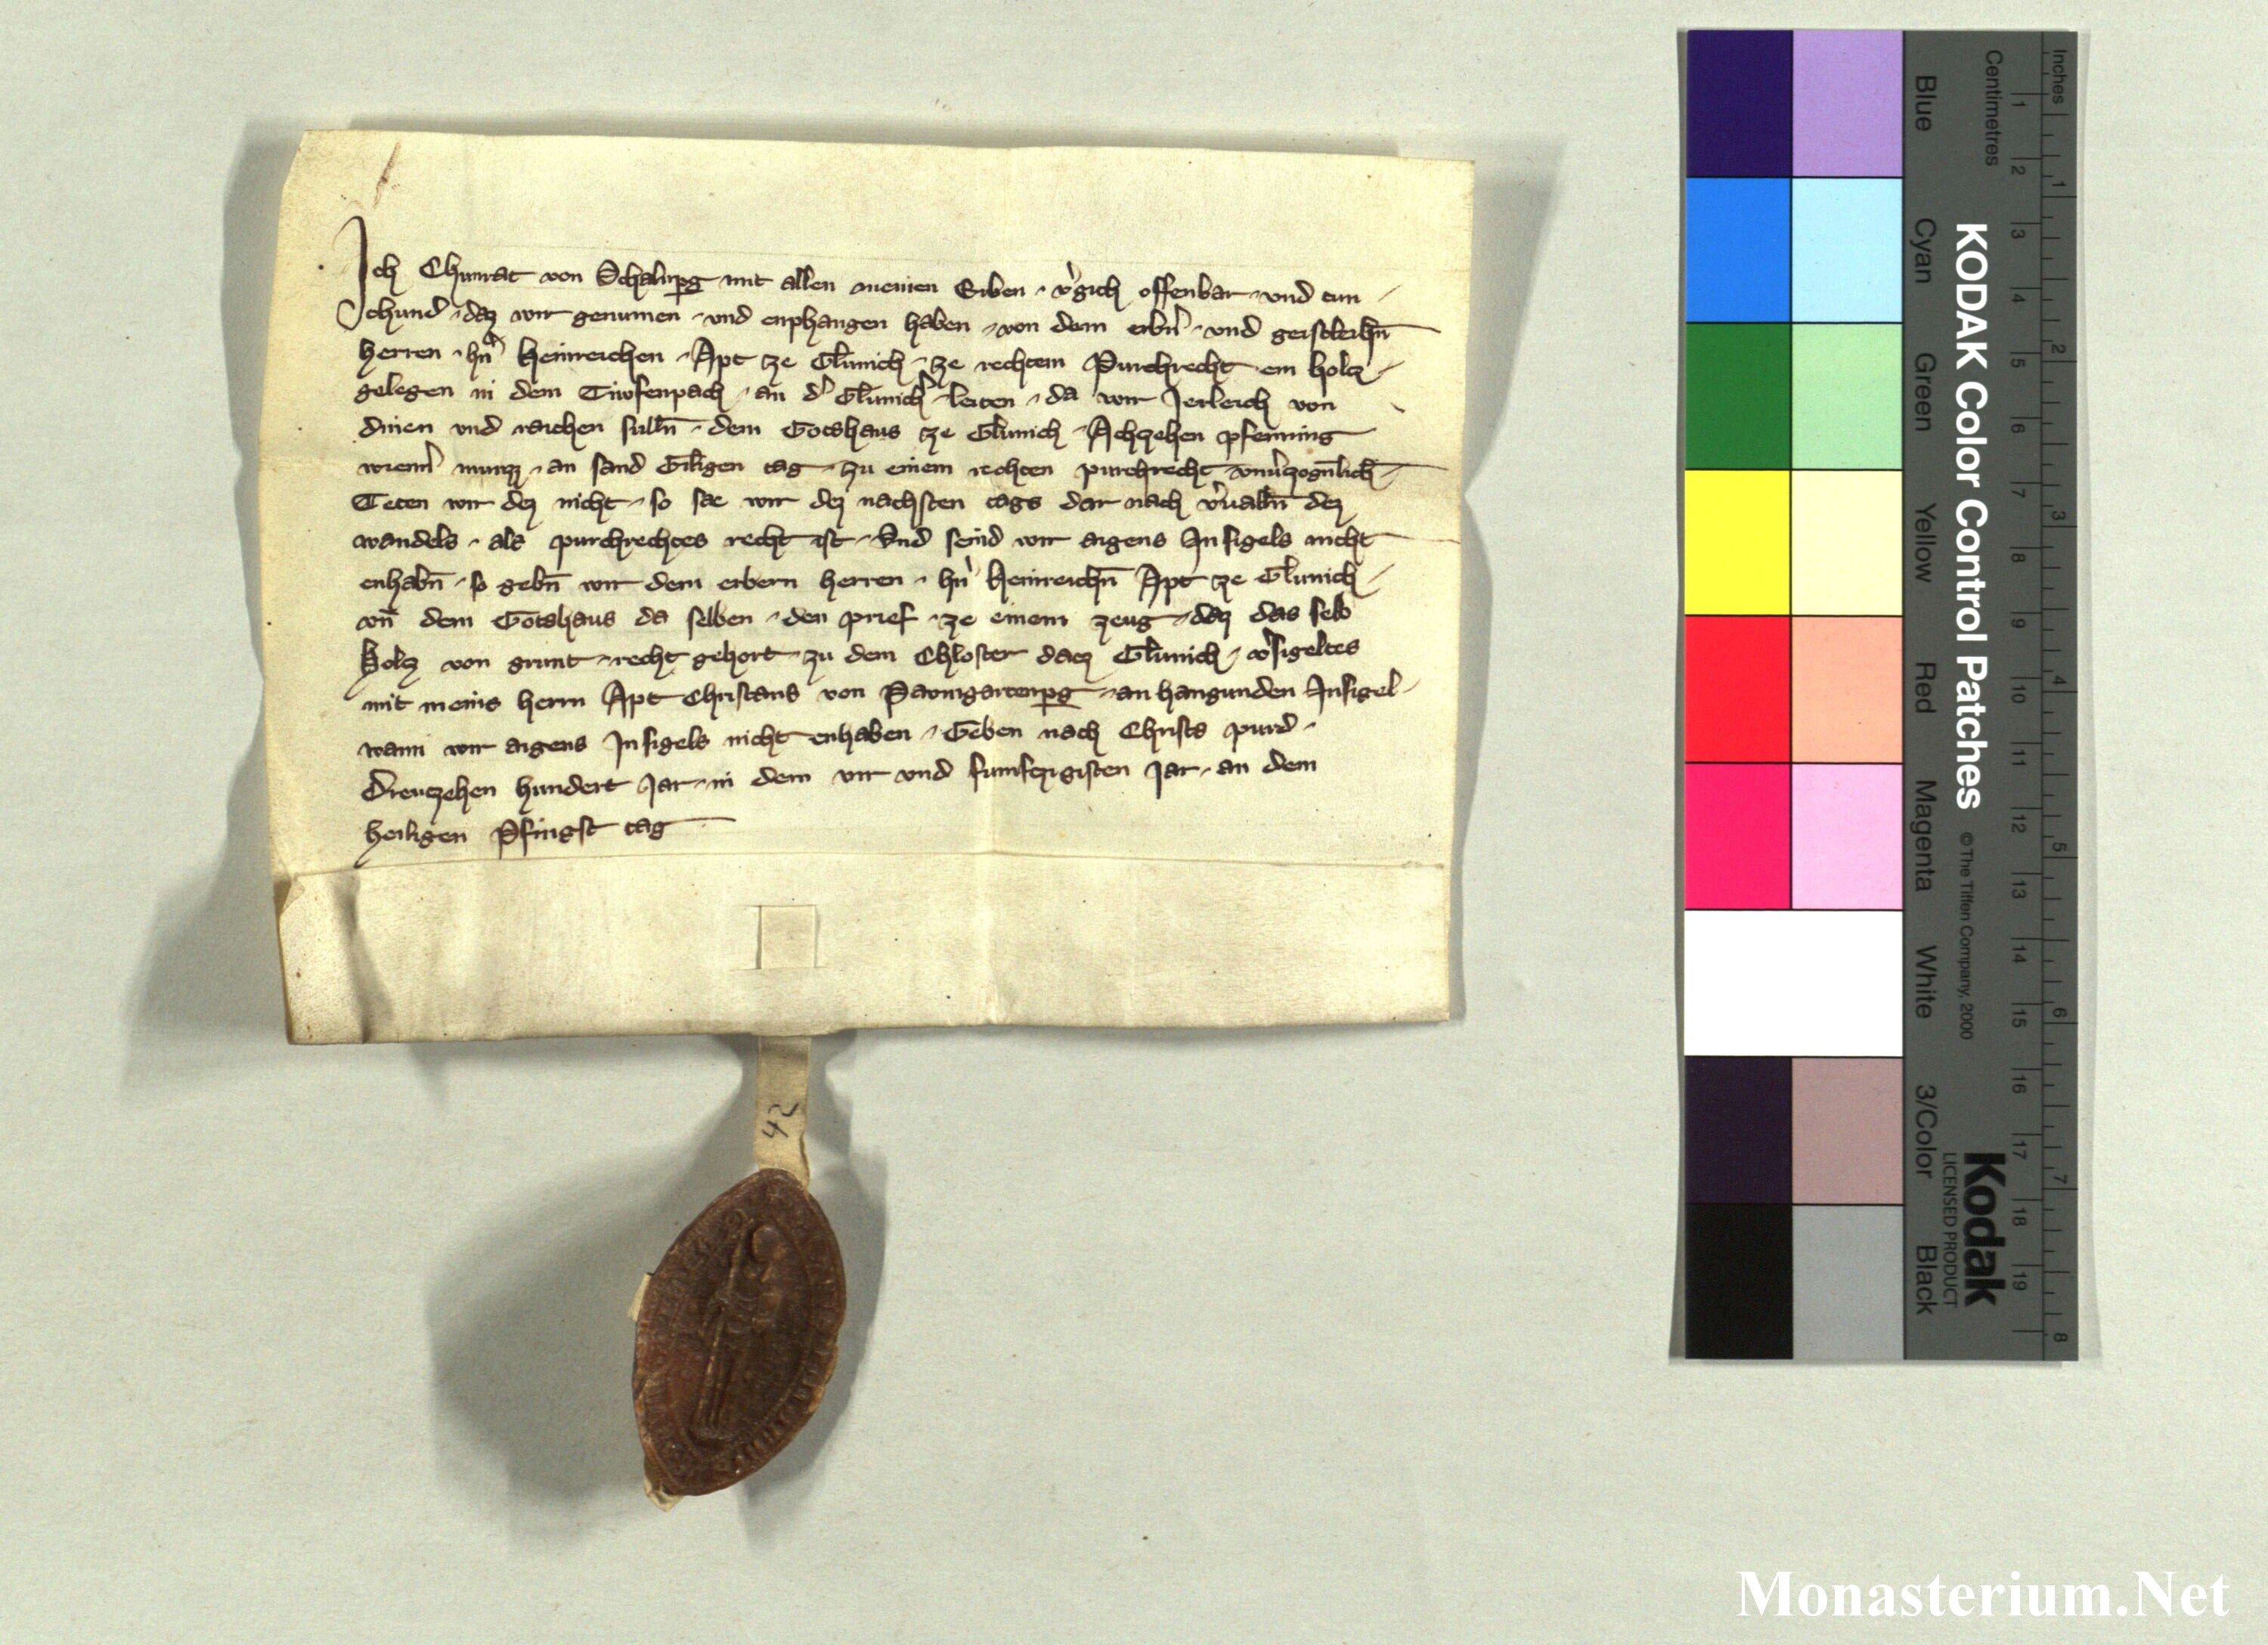 Ich Chunrat von Schalnpg mit allen meinen Erben v'gich offenbar und tun
chund daz wir genumen und enphangen haben von dem erbn' und geistleichn̄
herren hn̄ Heinreichen Apt ze Glunich ze rechtem Purchrecht ein holcz
gelegen in dem Tiwfenpach an d' Glunich' leiten da wir Jerleich von
dinen und raichen sulln̄ dem Gotshaus ze Glunich Achzehen pfenning
wienn' munzz an sand Giligen tag zu einem rechten purchrecht vnu'zogn̄lich
Teten wir dez nicht so sae wir dez nachsten tags dar nach v'ualln̄ dez
wandels als purchrechtes recht ist Und seind wir aigens Insigels nicht
enhabn̄ so gebn̄ wir dem erbern herren hn' Heinreichn̄ Apt ze Glunich
vn̄ dem Gotshaus da selben den prief ze einem zeug daz das selb
Holcz von grunt recht gehort zu dem Chloster dacz Glunich v'sigeltes
mit meins herrn Apt Christans von Paumgartenpg an hangunden Insigel
wann wir aigens Insigels nicht enhaben Geben nach Christs purd
Dreuczehen hundert Jar in dem vir und fumfczigisten Jar an dem
heiligen Pfingst tag
42
Inches
Centimetres
1 2 3 4 5 6 7 8
1 2 3 4 5 6 7 8 9 10 11 12 13 14 15 16 17 18 19
KODAK Color Control Patches
© The Tiffen Company, 2000
Kodak
LICENSED PRODUCT
Blue
Cyan
Green
Yellow
Red
Magenta
White
3/Color
Black
Monasterium.Net